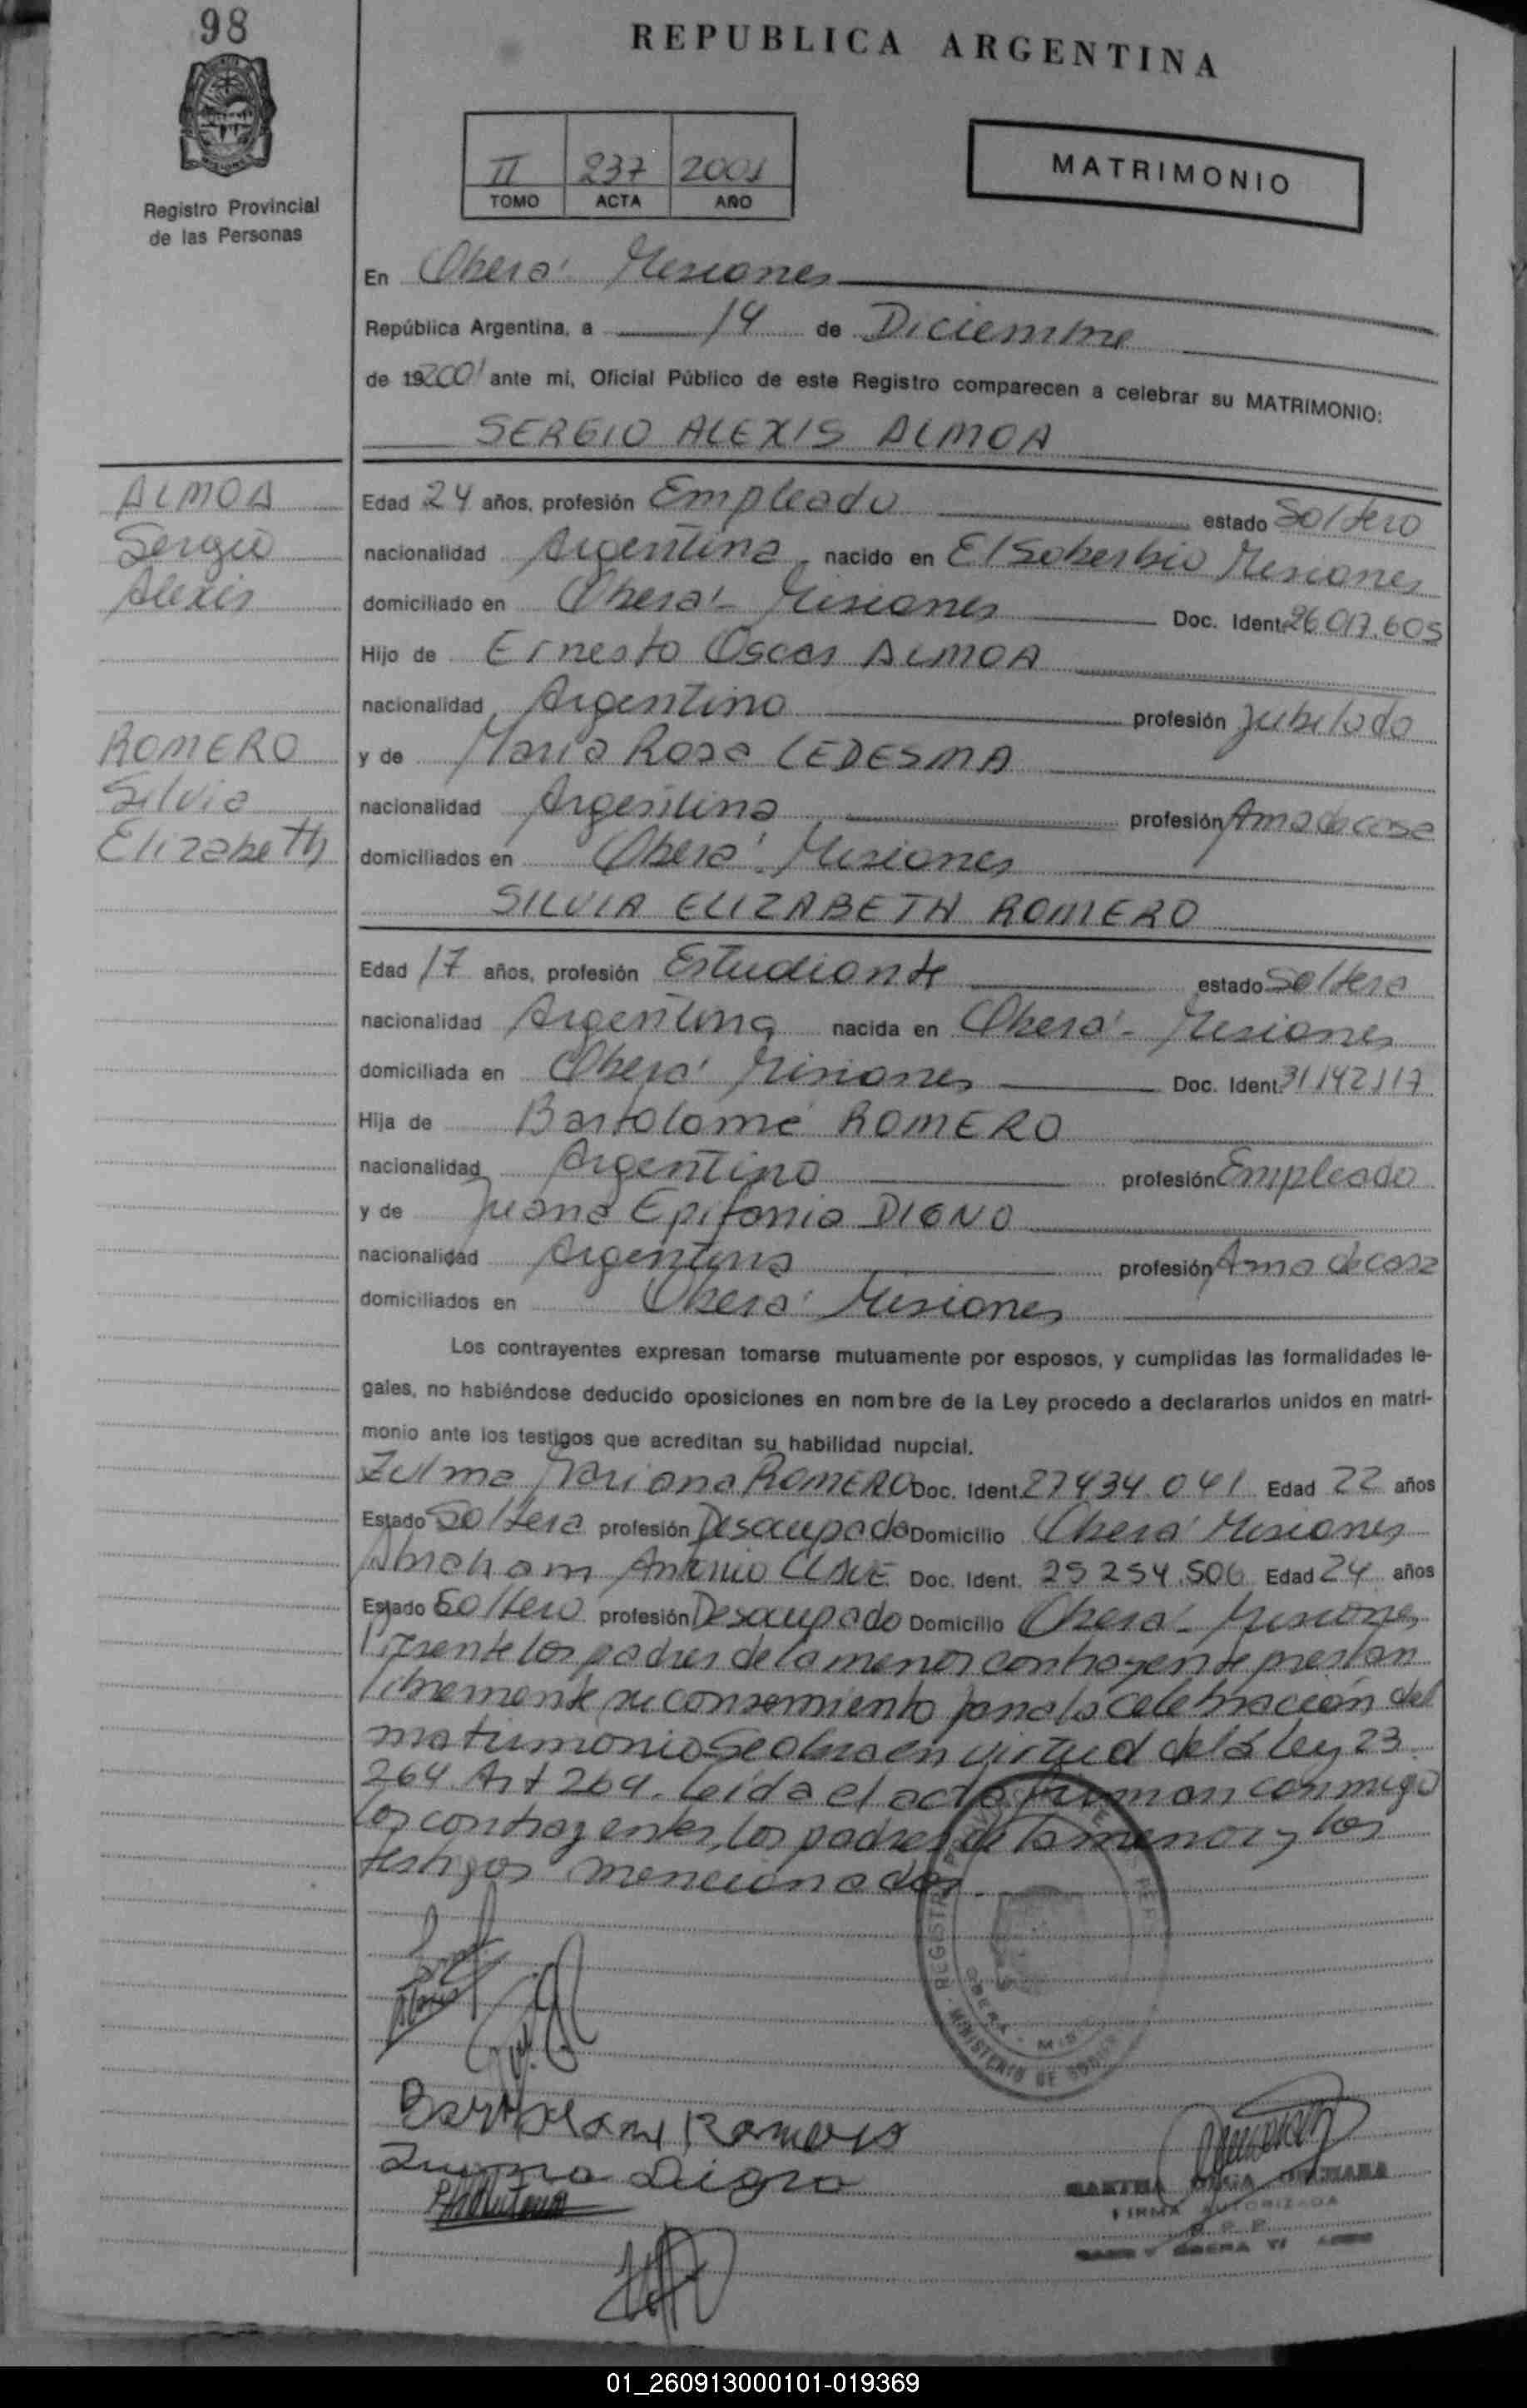 98
REPUBLICA ARGENTINA
Registro Provincial
de las Personas
II 237 2001
TOMO ACTA AÑO
MATRIMONIO
En Oberá Misiones
República Argentina, a 14 de Diciembre
de 192001 ante mí, Oficial Público de este Registro comparecen a celebrar su MATRIMONIO:
SERGIO ALEXIS ALMOA
ALMOA
Sergio
Alexis
Edad 24 años, profesión Empleado estado Soltero
nacionalidad Argentina nacido en El Soberbio Misiones
domiciliado en Oberá - Misiones Doc. Ident. 26.017.605
Hijo de Ernesto Oscar ALMOA
nacionalidad Argentino profesión Jubilado
ROMERO
Silvia
Elizabeth
y de María Rosa LEDESMA
nacionalidad Argentina profesión Ama de casa
domiciliados en Oberá Misiones
SILVIA ELIZABETH ROMERO
Edad 17 años, profesión Estudiante estado Soltera
nacionalidad Argentina nacida en Oberá - Misiones
domiciliada en Oberá Misiones Doc. Ident. 31.142.117
Hija de Bartolomé ROMERO
nacionalidad Argentino profesión Empleado
y de Juana Epifania DIGNO
nacionalidad Argentina profesión Ama de casa
domiciliados en Oberá Misiones
Los contrayentes expresan tomarse mutuamente por esposos, y cumplidas las formalidades le-
gales, no habiéndose deducido oposiciones en nombre de la Ley procedo a declararlos unidos en matri-
monio ante los testigos que acreditan su habilidad nupcial.
Zulma Mariana ROMERO Doc. Ident. 27434.041 Edad 22 años
Estado Soltera profesión Desocupada Domicilio Oberá Misiones
Abraham Antonio CLAVE Doc. Ident. 25254.506 Edad 24 años
Estado Soltero profesión Desocupado Domicilio Oberá - Misiones
Presente los padres de la menor contrayente prestan
libremente su consemiento para la celebración del
matrimonio se obra en virtud de la ley 23.
264 Art 264. Leída el acta firman conmigo
los contrayentes, los padres de la menor y los
testigos mencionados.
MINISTERIO DE
Romero
Juana Digno
FIRMA AUTORIZADA
01_260913000101-019369